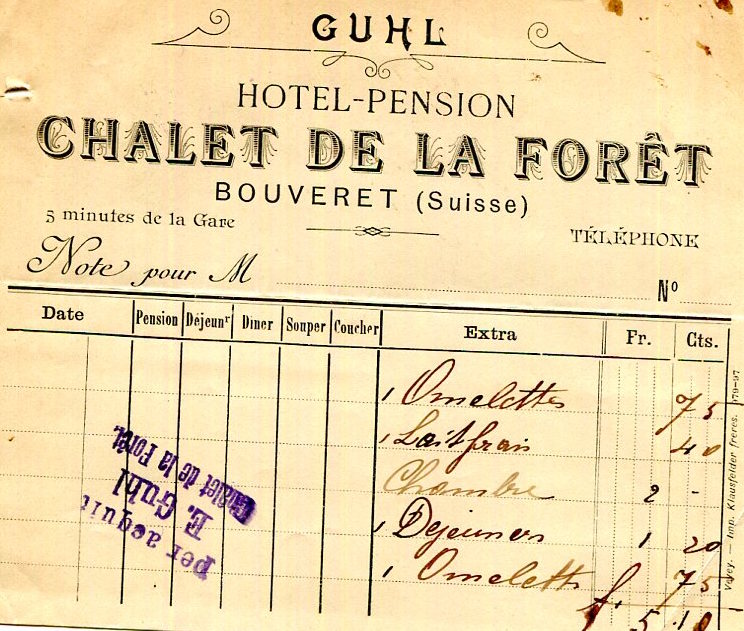 GUHL
HOTEL-PENSION
CHALET DE LA FORÊT
BOUVERET (Suisse)
5 minutes de la Gare
TÉLÉPHONE
Note pour M Nº
Date Pension Déjeunr Diner Souper Coucher Extra Fr. Cts.
1 Omelettes 75
1 Lait frais 40
Chambre 2 -
1 Dejeuners 1 20
1 Omelette 75
f. 5.10
per acquit
E. Guhl
Chalet de la Forêt.
Vevey. — Imp. Klausfelder frères. 979-97